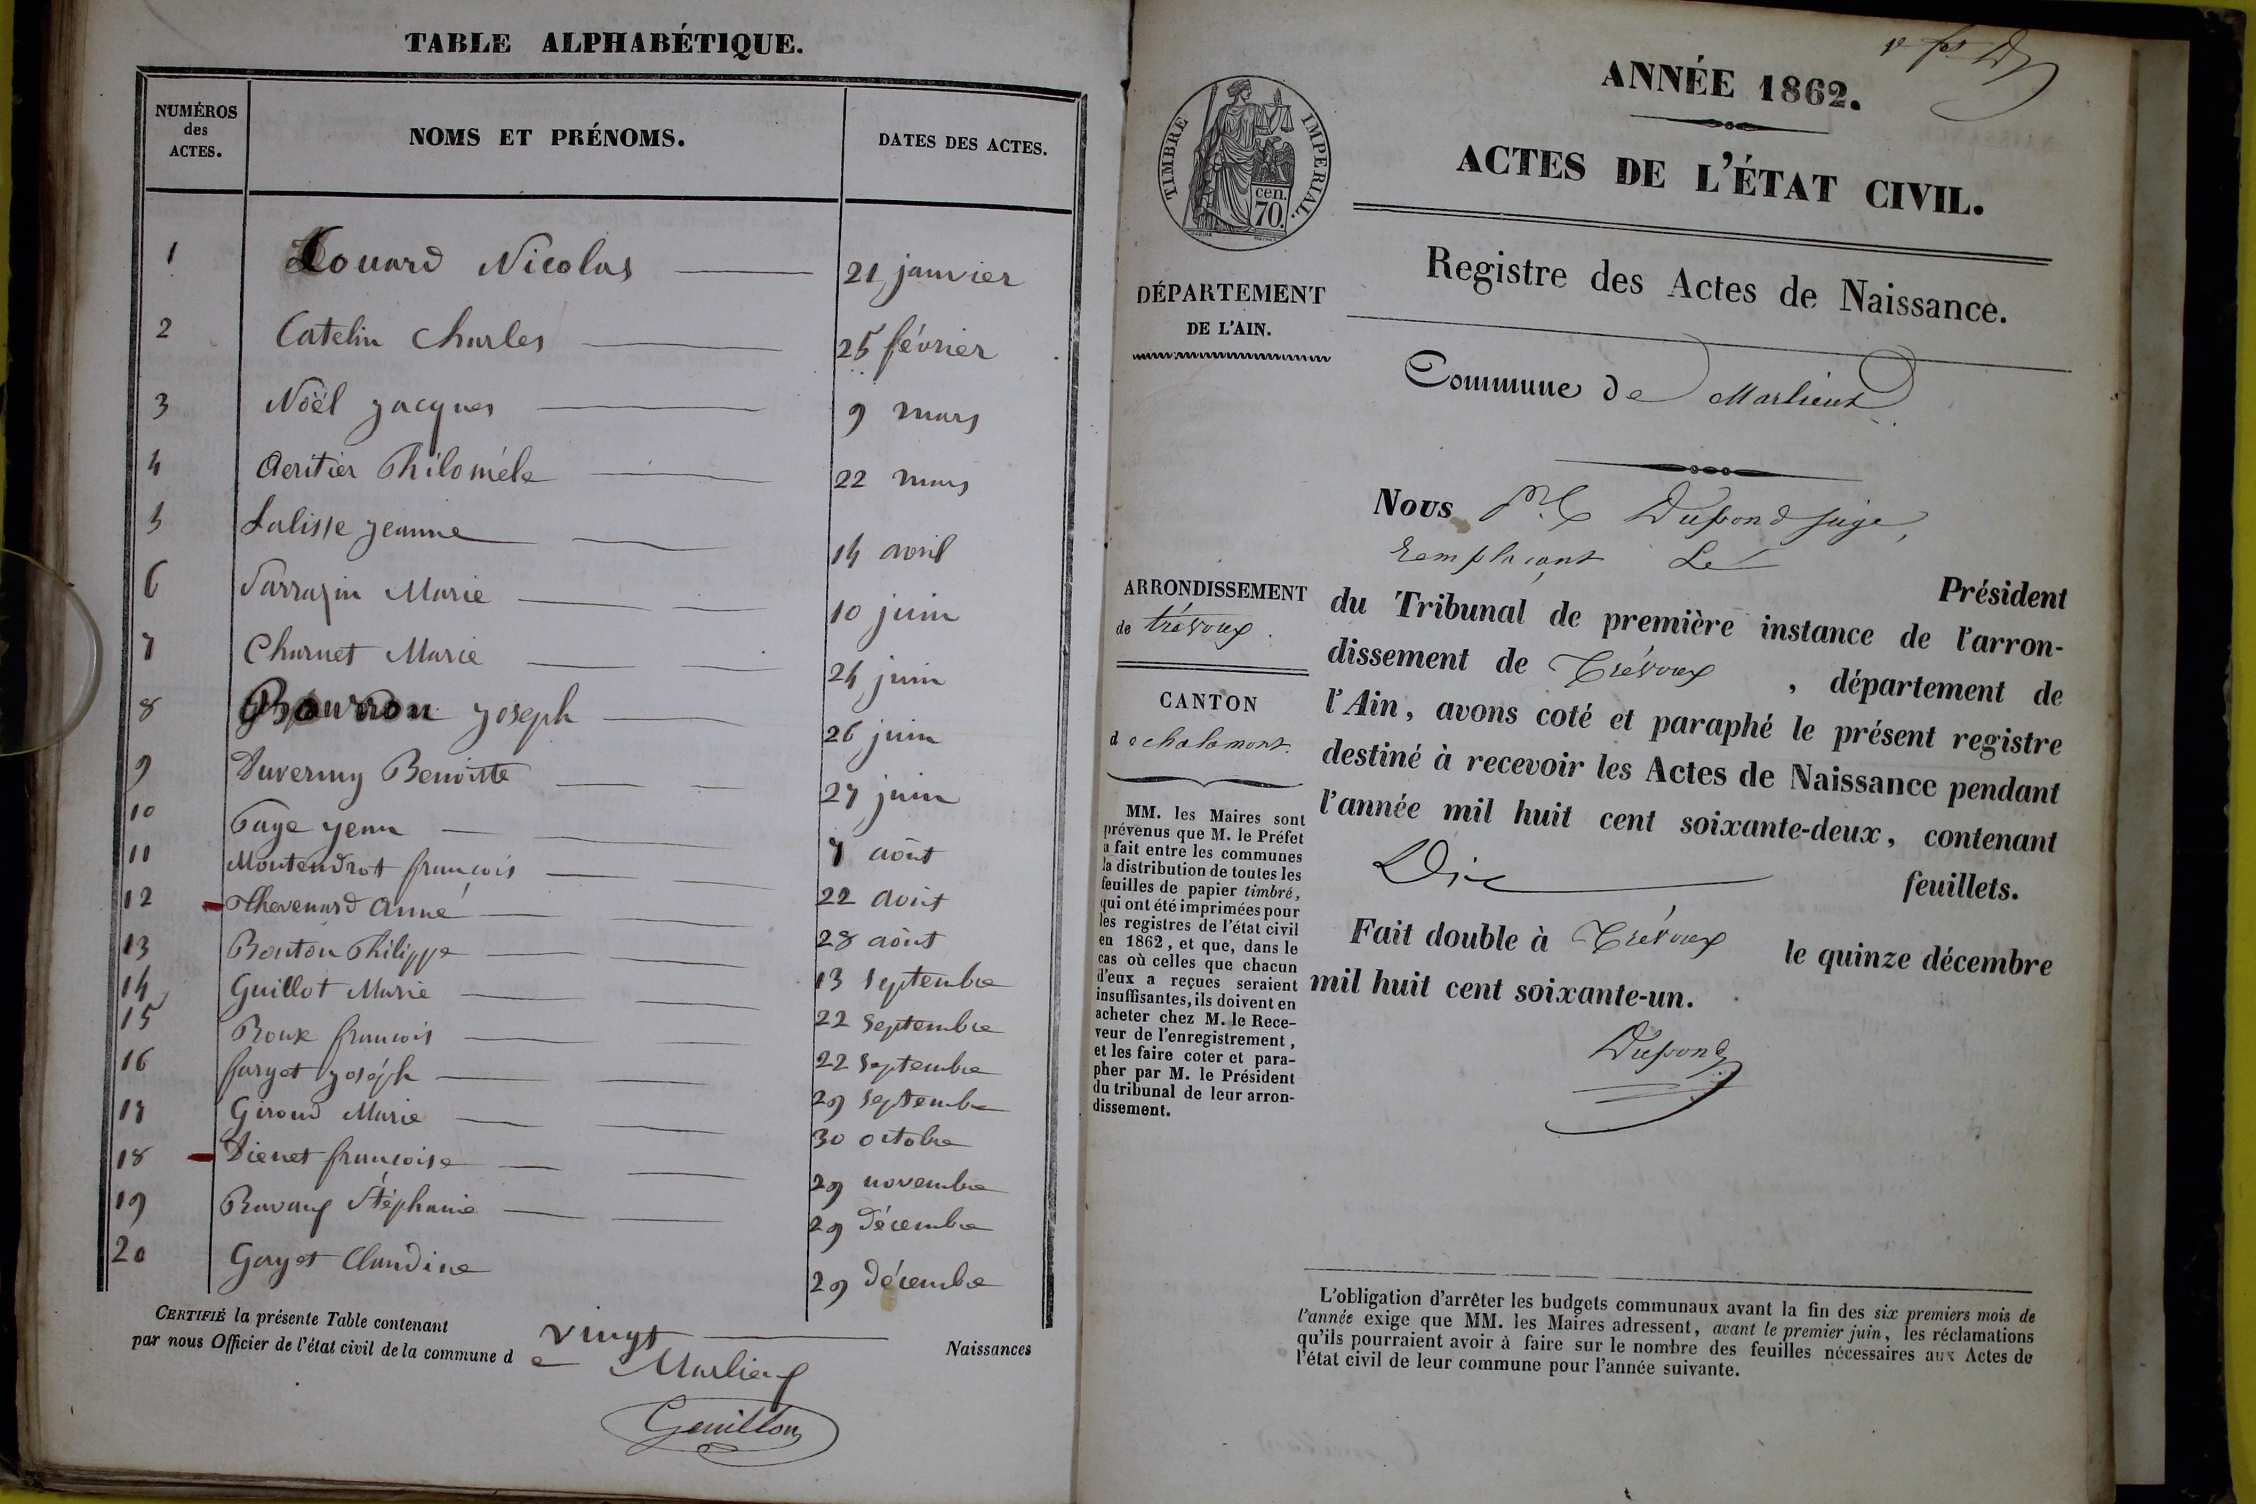 TABLE ALPHABÉTIQUE.
NUMÉROS des ACTES. NOMS ET PRÉNOMS. DATES DES ACTES.
1 Louard Nicolas 21 janvier
2 Catelin Charles 25 février
3 Noël Jacques 9 mars
4 Aeritier Philomèle 22 mars
5 Lalisse Jeanne 14 avril
6 Sarrazin Marie 10 juin
7 Charnet Marie 24 juin
8 Bourron Joseph 26 juin
9 Duvernay Benoitte 27 juin
10 Page Jean 7 août
11 Montendrot françois 22 août
12 Thevenard Anne 28 août
13 Bouton Philippe 13 septembre
14 Guillot Marie 22 septembre
15 Roux françois 22 septembre
16 farget Joseph 29 septembre
17 Giroud Marie 30 octobre
18 Dienet françoise 29 novembre
19 Ravaux Stéphanie 29 décembre
20 Gayet Claudine 29 décembre
CERTIFIÉ la présente Table contenant vingt Naissances
par nous Officier de l'état civil de la commune de Marlieux
Genillon
ANNÉE 1862.
ACTES DE L'ÉTAT CIVIL.
TIMBRE IMPÉRIAL.
cen.
70.
Registre des Actes de Naissance.
DÉPARTEMENT
DE L'AIN.
Commune de Marlieux
Nous Dupond juge,
remplaçant Le Président
ARRONDISSEMENT
de trévoux.
CANTON
de chalamont.
du Tribunal de première instance de l'arron-
dissement de Trévoux, département de
l'Ain, avons coté et paraphé le présent registre
destiné à recevoir les Actes de Naissance pendant
l'année mil huit cent soixante-deux, contenant
Dix feuillets.
Fait double à Trévoux le quinze décembre
mil huit cent soixante-un.
Dupond
MM. les Maires sont
prévenus que M. le Préfet
a fait entre les communes
la distribution de toutes les
feuilles de papier timbré,
qui ont été imprimées pour
les registres de l'état civil
en 1862, et que, dans le
cas où celles que chacun
d'eux a reçues seraient
insuffisantes, ils doivent en
acheter chez M. le Rece-
veur de l'enregistrement,
et les faire coter et para-
pher par M. le Président
du tribunal de leur arron-
dissement.
L'obligation d'arrêter les budgets communaux avant la fin des six premiers mois de
l'année exige que MM. les Maires adressent, avant le premier juin, les réclamations
qu'ils pourraient avoir à faire sur le nombre des feuilles nécessaires aux Actes de
l'état civil de leur commune pour l'année suivante.